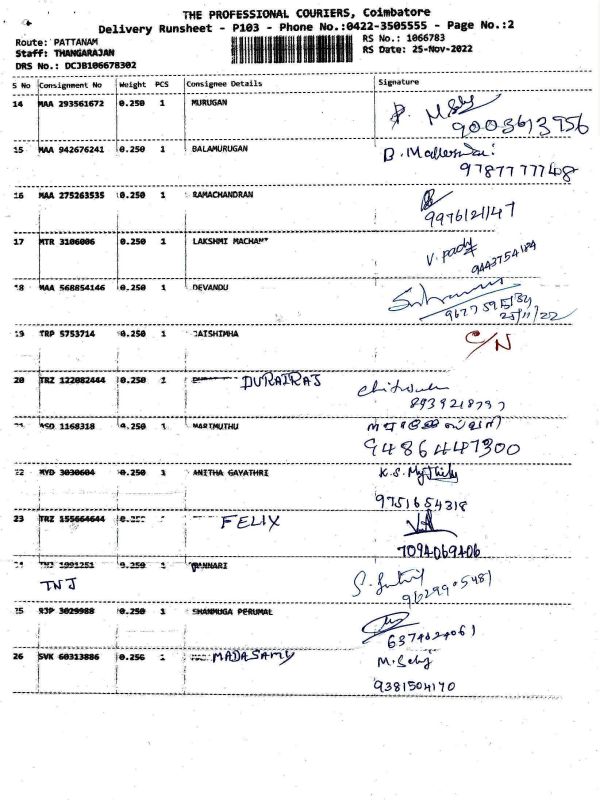 THE PROFESSIONAL COURIERS, Coimbatore
Delivery Runsheet - P103 - Phone No.:0422-3505555 - Page No.:2
Route: PATTANAM
RS No.: 1066783
Staff: THANGARAJAN
RS Date: 25-Nov-2022
DRS No.: DCJB106678302
S No Consignment No Weight PCS Consignee Details Signature
14 MAA 293561672 0.250 1 MURUGAN
9003613956
15 MAA 942676241 0.250 1 BALAMURUGAN
9787777408
16 MAA 275263535 0.250 1 RAMACHANDRAN
9976121147
17 MTR 3106006 0.250 1 LAKSHMI
9443754184
18 MAA 568854146 0.250 1 DEVANDU
25/11/22
19 TRP 5753714 0.250 1 JAISHIMHA C/N
20 TRZ 122082444 0.250 1 DURAIRAJ
1168318 0.250 1 MARIMUTHU
9486447300
22 MYD 3030604 0.250 1 ANITHA GAYATHRI
9751654318
23 TRZ 155664644 FELIX
7094069406
TNJ
25 RJP 3029988 0.250 1 SHANMUGA PERUMAL
26 SVK 60313886 0.250 1 MADASAMY
9381504170